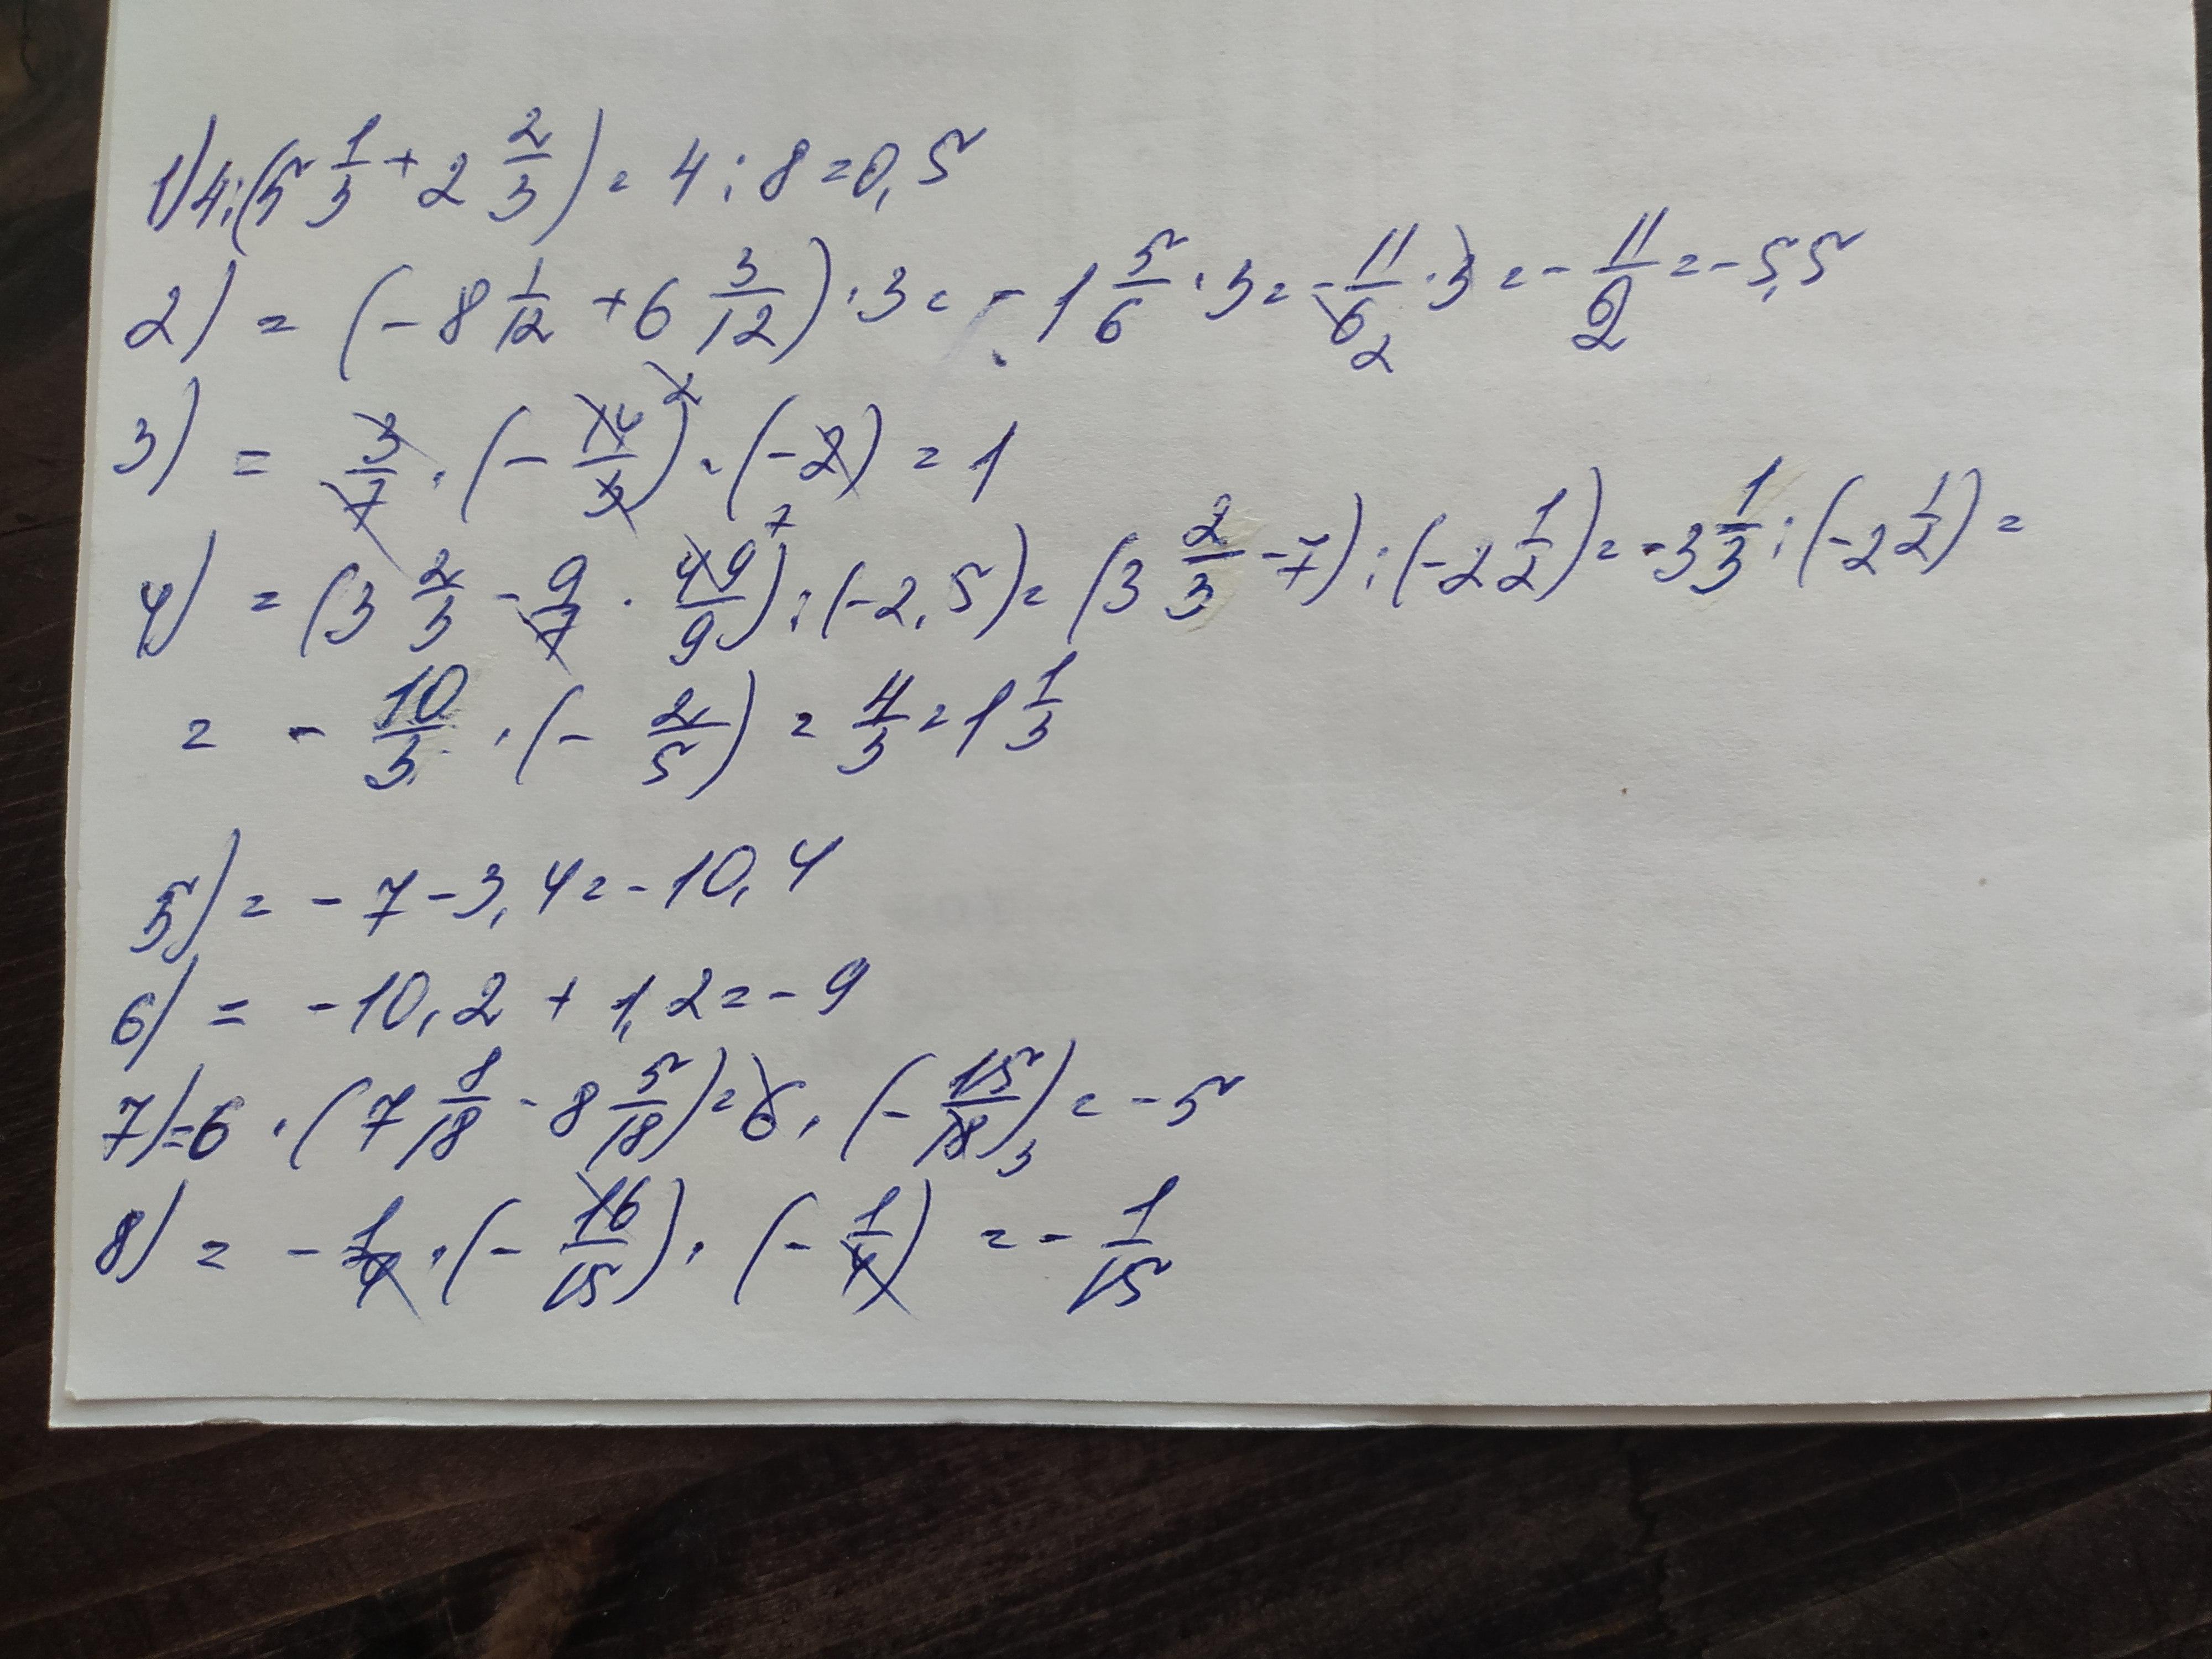 1) 4:(5 1/3 + 2 2/3) = 4 : 8 = 0,5
2) = (- 8 1/12 + 6 3/12) · 3 = - 1 5/6 · 3 = - 11/6 2 · 3 = - 11/2 = - 5,5
3) = 3/7 · (- 14/3) 2 · (-2) = 1
4) = (3 2/3 - 9/7 · 49/9) 7 : (-2,5) = (3 2/3 - 7) : (-2 1/2) = -3 1/3 : (-2 1/2) =
= - 10/3 · (- 2/5) = 4/3 = 1 1/3
5) = - 7 - 3,4 = - 10,4
6) = - 10,2 + 1,2 = - 9
7) = 6 · (7 8/18 - 8 5/18) = 6 · (- 15/18) 3 = - 5
8) = - 1/4 · (- 16/15) · (- 1/4) = - 1/15